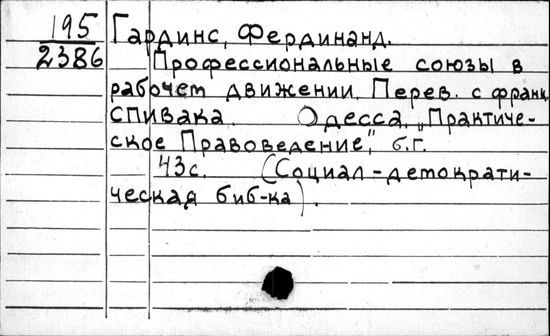 195
2386
Гардинс, Фердинанд.
Профессиональные союзы в
рабочем движении. Перев. с франц.
Спивака. Одесса, „Практиче-
ское Правоведение", б.г.
43с. (Социал-демократи-
ческая биб-ка).